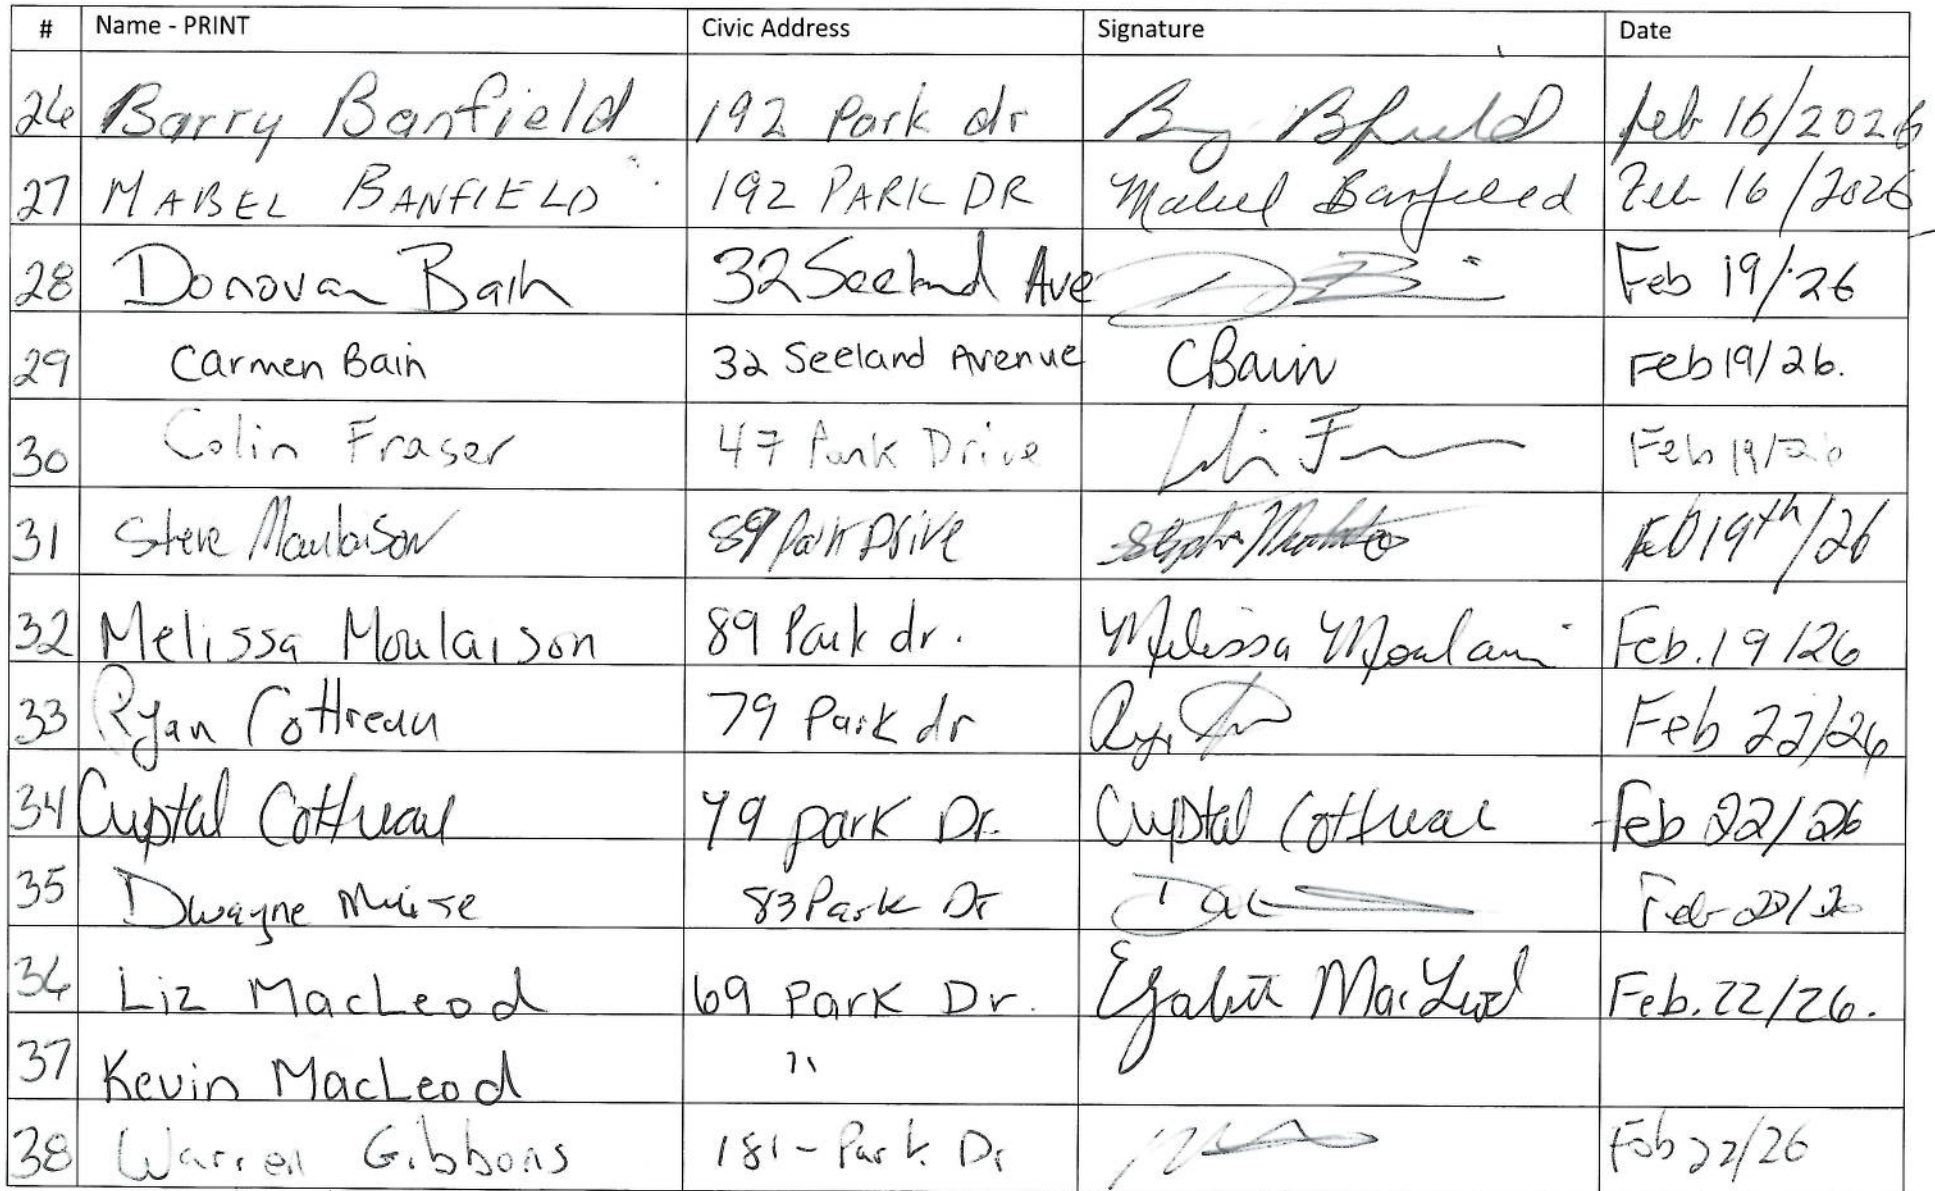 # Name - PRINT Civic Address Signature Date
26 Barry Banfield 192 Park dr feb 16/2026
27 MABEL BANFIELD 192 PARK DR Mabel Banfield Feb 16/2026
28 Donovan Bain 32 Seeland Ave Feb 19/26
29 Carmen Bain 32 Seeland Avenue CBain Feb 19/26.
30 Colin Fraser 47 Park Drive Feb 19/26
31 Steve Moulaison 89 Park Drive Feb 19th/26
32 Melissa Moulaison 89 Park dr. Melissa Moulaison Feb. 19/26
33 Ryan Cottreau 79 Park dr Feb 22/26
34 Crystal Cottreau 79 park Dr. Crystal Cottreau Feb 22/26
35 Dwayne Muise 83 Park Dr Feb 22/26
36 Liz MacLeod 69 Park Dr. Elizabeth MacLeod Feb. 22/26.
37 Kevin MacLeod "
38 Warren Gibbons 181 - Park Dr Feb 22/26